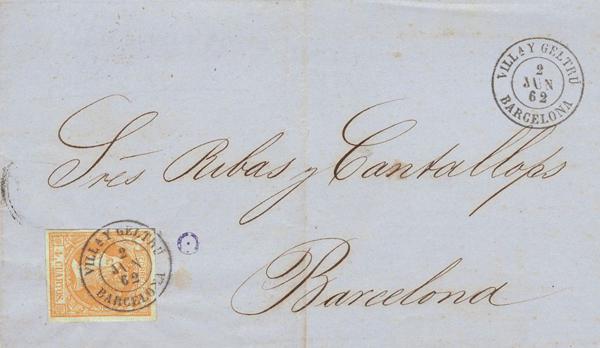 VILLA Y GELTRU
2
JUN
62
BARCELONA
Srês Ribas y Cantallops
Barcelona
VILLA Y GELTRU
2
JUN
62
BARCELONA
4 CUARTOS